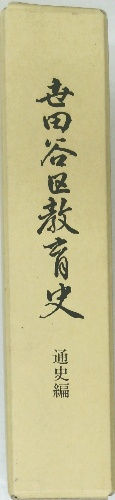 世田谷区教育史
通史編